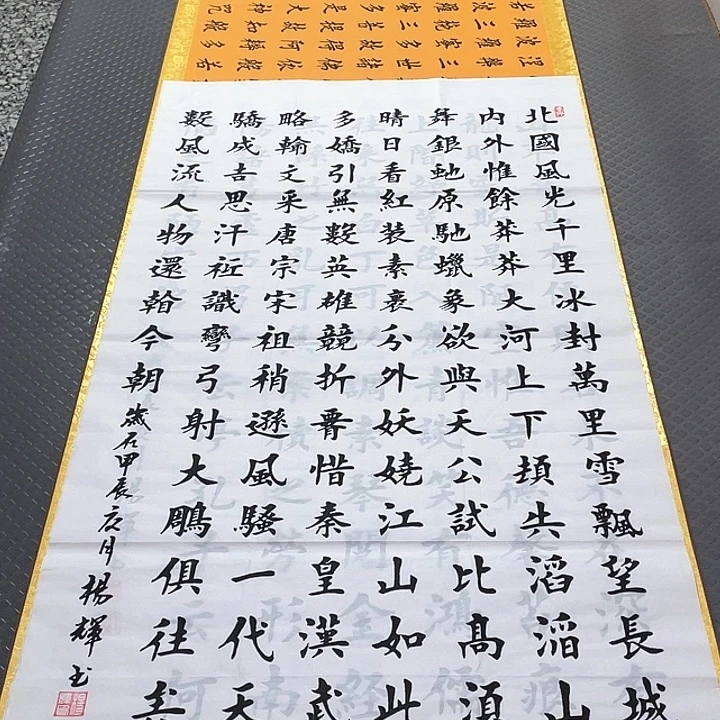 北國風光千里冰封萬里雪飄望長城
内外惟餘莽莽大河上下頓失滔滔山
舞銀蛇原馳蠟象欲與天公試比高須
晴日看紅裝素裹分外妖嬈江山如此
多嬌引無數英雄競折腰惜秦皇漢武
略輸文采唐宗宋祖稍遜風騷一代天
驕成吉思汗祗識彎弓射大鵰俱往矣
數風流人物還看今朝
歲在甲辰夏月楊輝书